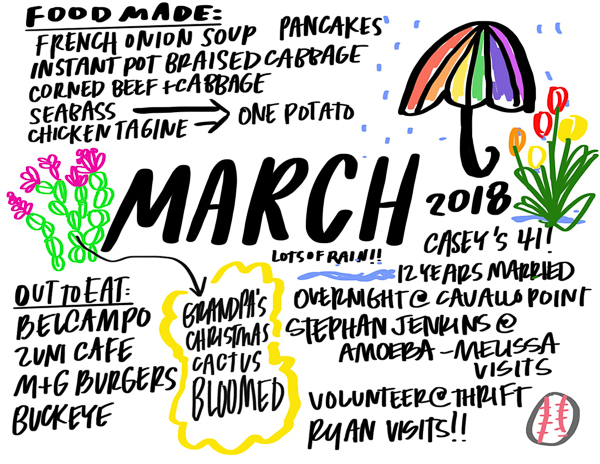 FOOD MADE:
FRENCH ONION SOUP PANCAKES
INSTANT POT BRAISED CABBAGE
CORNED BEEF + CABBAGE
SEABASS → ONE POTATO
CHICKEN TAGINE →
MARCH
2018
LOTS OF RAIN!!
CASEY'S 41!
12 YEARS MARRIED
OVERNIGHT @ CAVALLO POINT
STEPHAN JENKINS @
AMOEBA - MELISSA
VISITS
VOLUNTEER @ THRIFT
RYAN VISITS!!
OUT TO EAT:
BELCAMPO
ZUNI CAFE
M+G BURGERS
BUCKEYE
GRANDPA'S
CHRISTMAS
CACTUS
BLOOMED